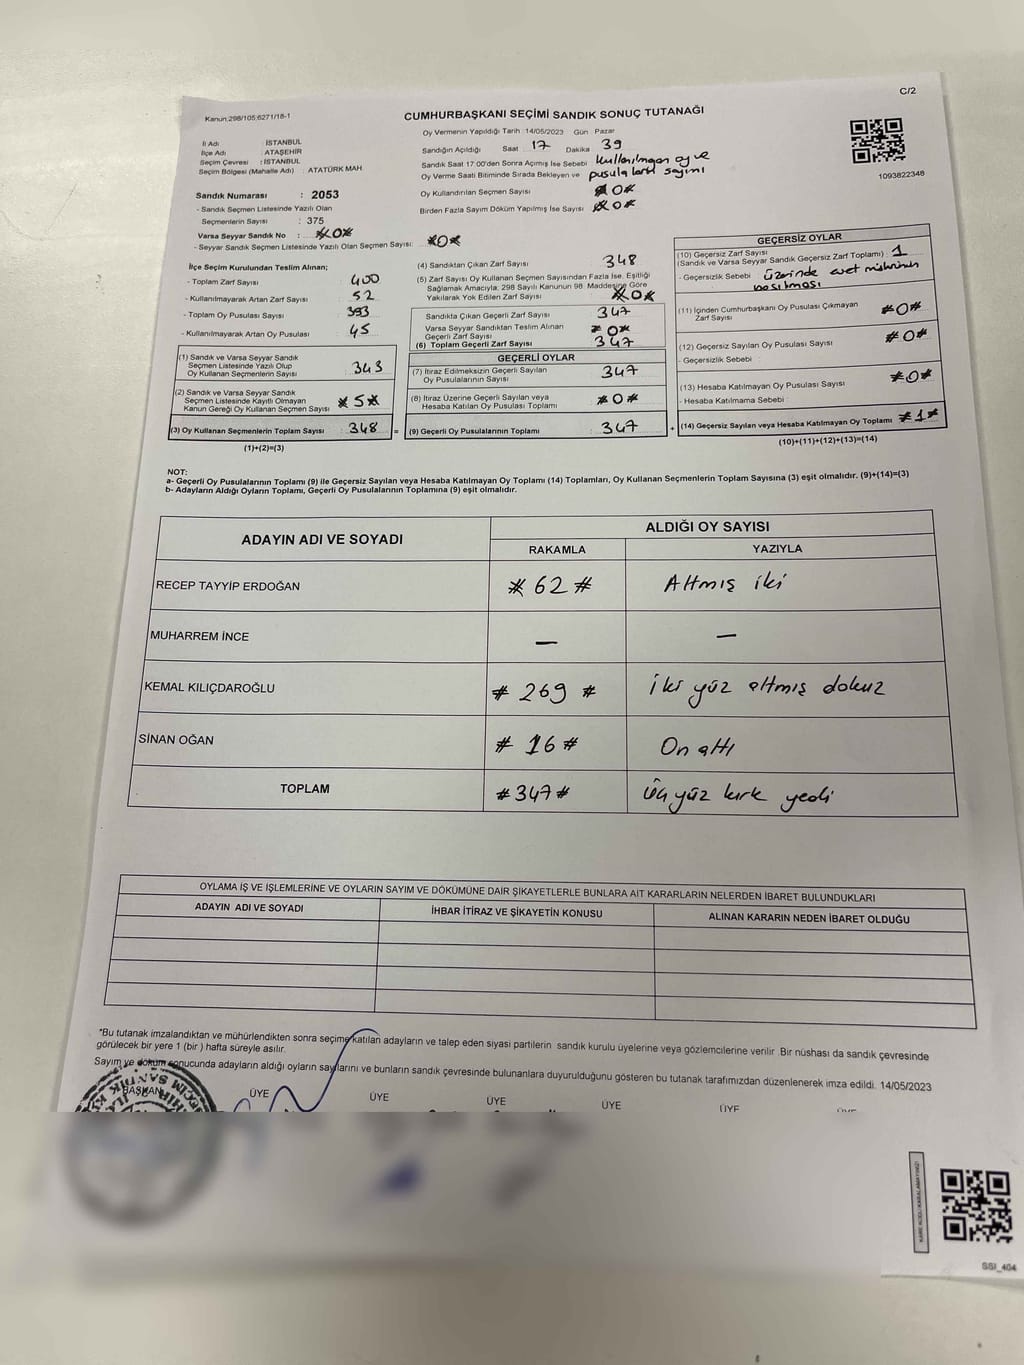 C/2
Kanun:298/105;6271/18-1
CUMHURBAŞKANI SEÇİMİ SANDIK SONUÇ TUTANAĞI
İl Adı : İSTANBUL
İlçe Adı : ATAŞEHİR
Seçim Çevresi : İSTANBUL
Seçim Bölgesi (Mahalle Adı) : ATATÜRK MAH
Sandık Numarası : 2053
- Sandık Seçmen Listesinde Yazılı Olan
Seçmenlerin Sayısı : 375
Varsa Seyyar Sandık No : #0#
- Seyyar Sandık Seçmen Listesinde Yazılı Olan Seçmen Sayısı: #0#
Oy Vermenin Yapıldığı Tarih :14/05/2023 Gün : Pazar
Sandığın Açıldığı Saat 17 Dakika 39
Sandık Saat 17:00'den Sonra Açımış İse Sebebi kullanılmayan oy ve
Oy Verme Saati Bitiminde Sırada Bekleyen ve pusulaların sayımı
Oy Kullandırılan Seçmen Sayısı #0#
Birden Fazla Sayım Döküm Yapılmış İse Sayısı #0#
1093822348
İlçe Seçim Kurulundan Teslim Alınan;
- Toplam Zarf Sayısı : 400
- Kullanılmayarak Artan Zarf Sayısı : 52
- Toplam Oy Pusulası Sayısı : 393
- Kullanılmayarak Artan Oy Pusulası : 45
(1) Sandık ve Varsa Seyyar Sandık
Seçmen Listesinde Yazılı Olup
Oy Kullanan Seçmenlerin Sayısı : 343
(2) Sandık ve Varsa Seyyar Sandık
Seçmen Listesinde Kayıtlı Olmayan
Kanun Gereği Oy Kullanan Seçmen Sayısı #5#
(3) Oy Kullanan Seçmenlerin Toplam Sayısı : 348
(1)+(2)=(3)
(4) Sandıktan Çıkan Zarf Sayısı : 348
(5) Zarf Sayısı Oy Kullanan Seçmen Sayısından Fazla İse, Eşitliği
Sağlamak Amacıyla, 298 Sayılı Kanunun 98. Maddesine Göre
Yakılarak Yok Edilen Zarf Sayısı #0#
Sandıkta Çıkan Geçerli Zarf Sayısı : 347
Varsa Seyyar Sandıktan Teslim Alınan
Geçerli Zarf Sayısı : #0#
(6) Toplam Geçerli Zarf Sayısı : 347
GEÇERLİ OYLAR
(7) İtiraz Edilmeksizin Geçerli Sayılan
Oy Pusulalarının Sayısı : 347
(8) İtiraz Üzerine Geçerli Sayılan veya
Hesaba Katılan Oy Pusulası Toplamı : #0#
= (9) Geçerli Oy Pusulalarının Toplamı : 347 +
GEÇERSİZ OYLAR
(10) Geçersiz Zarf Sayısı
(Sandık ve Varsa Seyyar Sandık Geçersiz Zarf Toplamı) : 1
- Geçersizlik Sebebi : üzerinde evet mührünün
basılması
(11) İçinden Cumhurbaşkanı Oy Pusulası Çıkmayan
Zarf Sayısı : #0#
(12) Geçersiz Sayılan Oy Pusulası Sayısı : #0#
- Geçersizlik Sebebi :
(13) Hesaba Katılmayan Oy Pusulası Sayısı : #0#
- Hesaba Katılmama Sebebi :
(14) Geçersiz Sayılan veya Hesaba Katılmayan Oy Toplamı : #1#
(10)+(11)+(12)+(13)=(14)
NOT:
a- Geçerli Oy Pusulalarının Toplamı (9) ile Geçersiz Sayılan veya Hesaba Katılmayan Oy Toplamı (14) Toplamları, Oy Kullanan Seçmenlerin Toplam Sayısına (3) eşit olmalıdır. (9)+(14)=(3)
b- Adayların Aldığı Oyların Toplamı, Geçerli Oy Pusulalarının Toplamına (9) eşit olmalıdır.
ADAYIN ADI VE SOYADI
ALDIĞI OY SAYISI
RAKAMLA YAZIYLA
RECEP TAYYİP ERDOĞAN #62# Altmış iki
MUHARREM İNCE — —
KEMAL KILIÇDAROĞLU #269# İki yüz altmış dokuz
SİNAN OĞAN #16# On altı
TOPLAM #347# Üç yüz kırk yedi
OYLAMA İŞ VE İŞLEMLERİNE VE OYLARIN SAYIM VE DÖKÜMÜNE DAİR ŞİKAYETLERLE BUNLARA AİT KARARLARIN NELERDEN İBARET BULUNDUKLARI
ADAYIN ADI VE SOYADI İHBAR İTİRAZ VE ŞİKAYETİN KONUSU ALINAN KARARIN NEDEN İBARET OLDUĞU
*Bu tutanak imzalandıktan ve mühürlendikten sonra seçime katılan adayların ve talep eden siyasi partilerin sandık kurulu üyelerine veya gözlemcilerine verilir .Bir nüshası da sandık çevresinde
görülecek bir yere 1 (bir ) hafta süreyle asılır.
Sayım ve döküm sonucunda adayların aldığı oyların sayılarını ve bunların sandık çevresinde bulunanlara duyurulduğunu gösteren bu tutanak tarafımızdan düzenlenerek imza edildi. 14/05/2023
BAŞKAN ÜYE ÜYE ÜYE ÜYE ÜYE ÜYE
KARE KODU KARALAMAYINIZ!
SSI_404